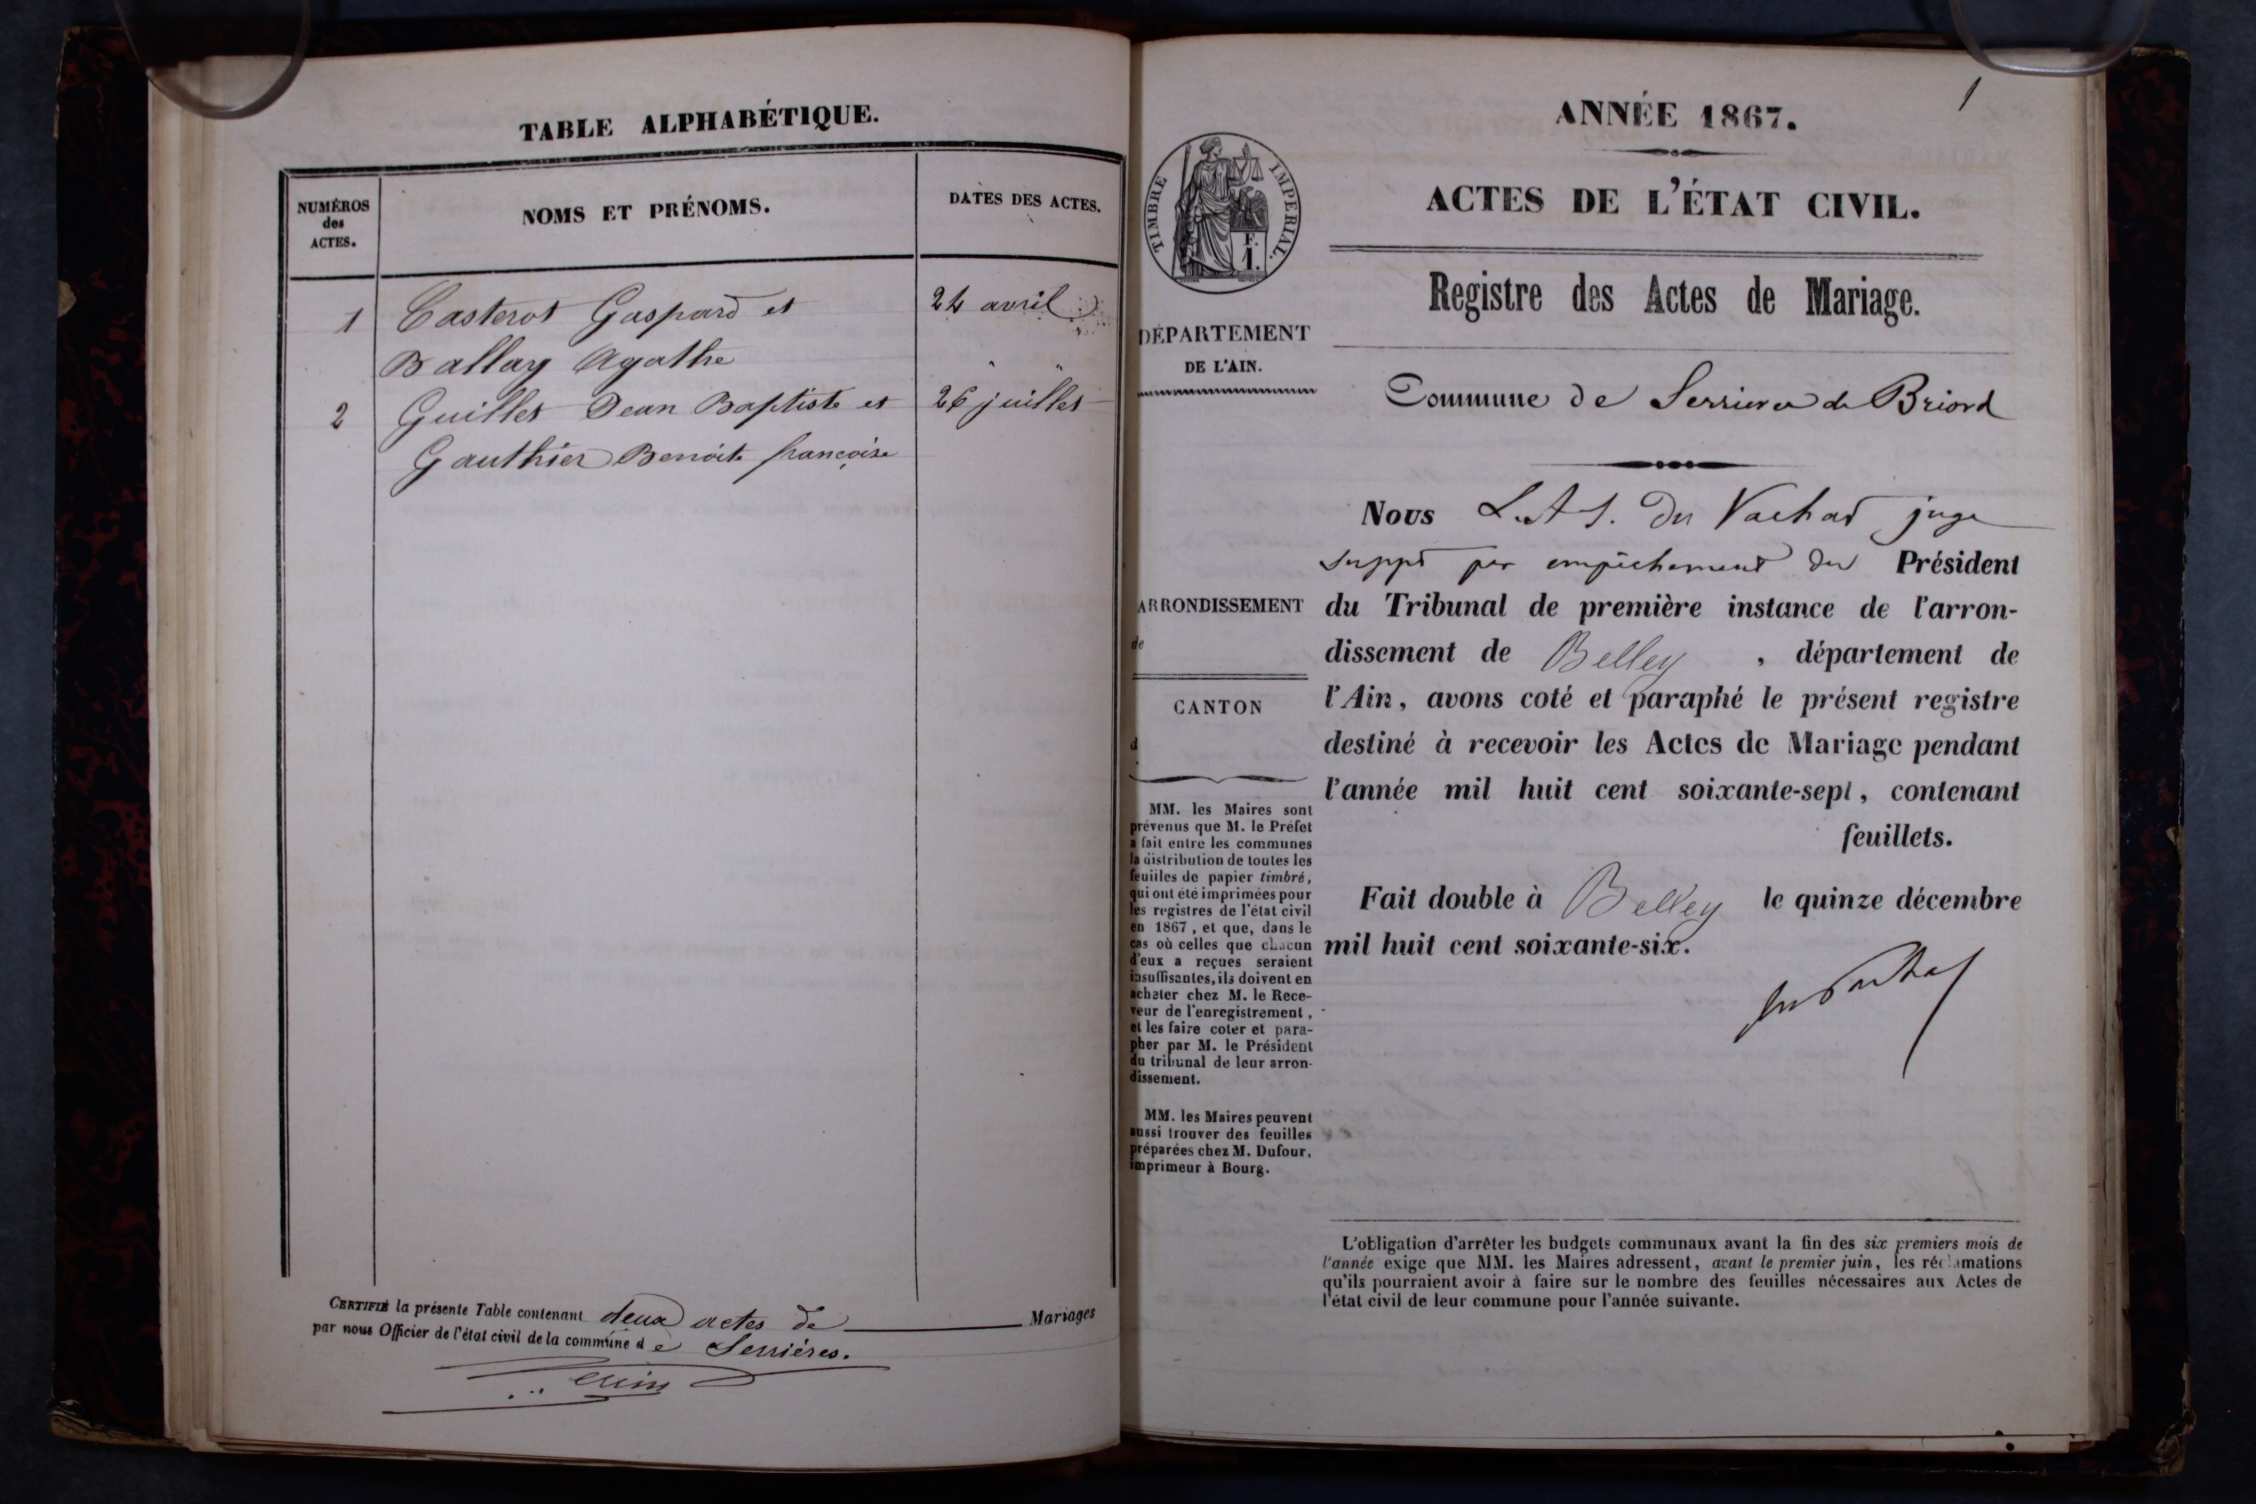 TABLE ALPHABÉTIQUE.
NUMÉROS
des
ACTES.
NOMS ET PRÉNOMS.
DATES DES ACTES.
1 Casterot Gaspard et 24 avril
Ballay Agathe " "
2 Guillet Jean Baptiste et 26 juillet
Gauthier Benoite françoise
CERTIFIÉ la présente Table contenant deux actes de Mariages
par nous Officier de l'état civil de la commune de Serrières.
1
ANNÉE 1867.
TIMBRE IMPERIAL.
F.
1.
ACTES DE L'ÉTAT CIVIL.
Registre des Actes de Mariage.
DÉPARTEMENT
DE L'AIN.
Commune de Serrieres de Briord
ARRONDISSEMENT
de
CANTON
d
MM. les Maires sont
prévenus que M. le Préfet
a fait entre les communes
la distribution de toutes les
feuilles de papier timbré,
qui ont été imprimées pour
les registres de l'état civil
en 1867, et que, dans le
cas où celles que chacun
d'eux a reçues seraient
insuffisantes, ils doivent en
acheter chez M. le Rece-
veur de l'enregistrement,
et les faire coter et para-
pher par M. le Président
du tribunal de leur arron-
dissement.
MM. les Maires peuvent
aussi trouver des feuilles
préparées chez M. Dufour,
imprimeur à Bourg.
Nous L. A. J. du Vachat juge
suppt par empêchement du Président
du Tribunal de première instance de l'arron-
dissement de Belley, département de
l'Ain, avons coté et paraphé le présent registre
destiné à recevoir les Actes de Mariage pendant
l'année mil huit cent soixante-sept, contenant
feuillets.
Fait double à Belley le quinze décembre
mil huit cent soixante-six.
L'obligation d'arrêter les budgets communaux avant la fin des six premiers mois de
l'année exige que MM. les Maires adressent, avant le premier juin, les réclamations
qu'ils pourraient avoir à faire sur le nombre des feuilles nécessaires aux Actes de
l'état civil de leur commune pour l'année suivante.